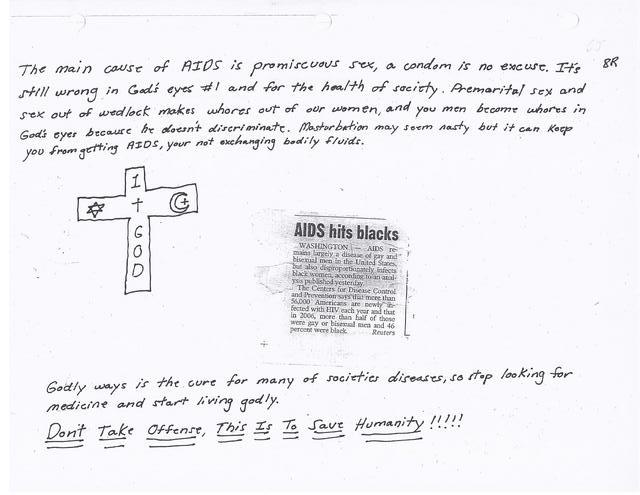 The main cause of AIDS is promiscuous sex, a condom is no excuse. It's 8R
still wrong in God's eyes #1 and for the health of society. Premarital sex and
sex out of wedlock makes whores out of our women, and you men become whores in
God's eyes because he doesn't discriminate. Mastorbation may seem nasty but it can keep
you from getting AIDS, your not exchanging bodily fluids.
I
✡ † ☪
G
O
D
AIDS hits blacks
WASHINGTON — AIDS re-
mains largely a disease of gay and
bisexual men in the United States,
but also disproportionately infects
black women, according to an anal-
ysis published yesterday.
The Centers for Disease Control
and Prevention says that more than
56,000 Americans are newly in-
fected with HIV each year and that
in 2006, more than half of those
were gay or bisexual men and 46
percent were black. Reuters
Godly ways is the cure for many of societies diseases, so stop looking for
medicine and start living godly.
Don't Take Offense, This Is To Save Humanity !!!!!